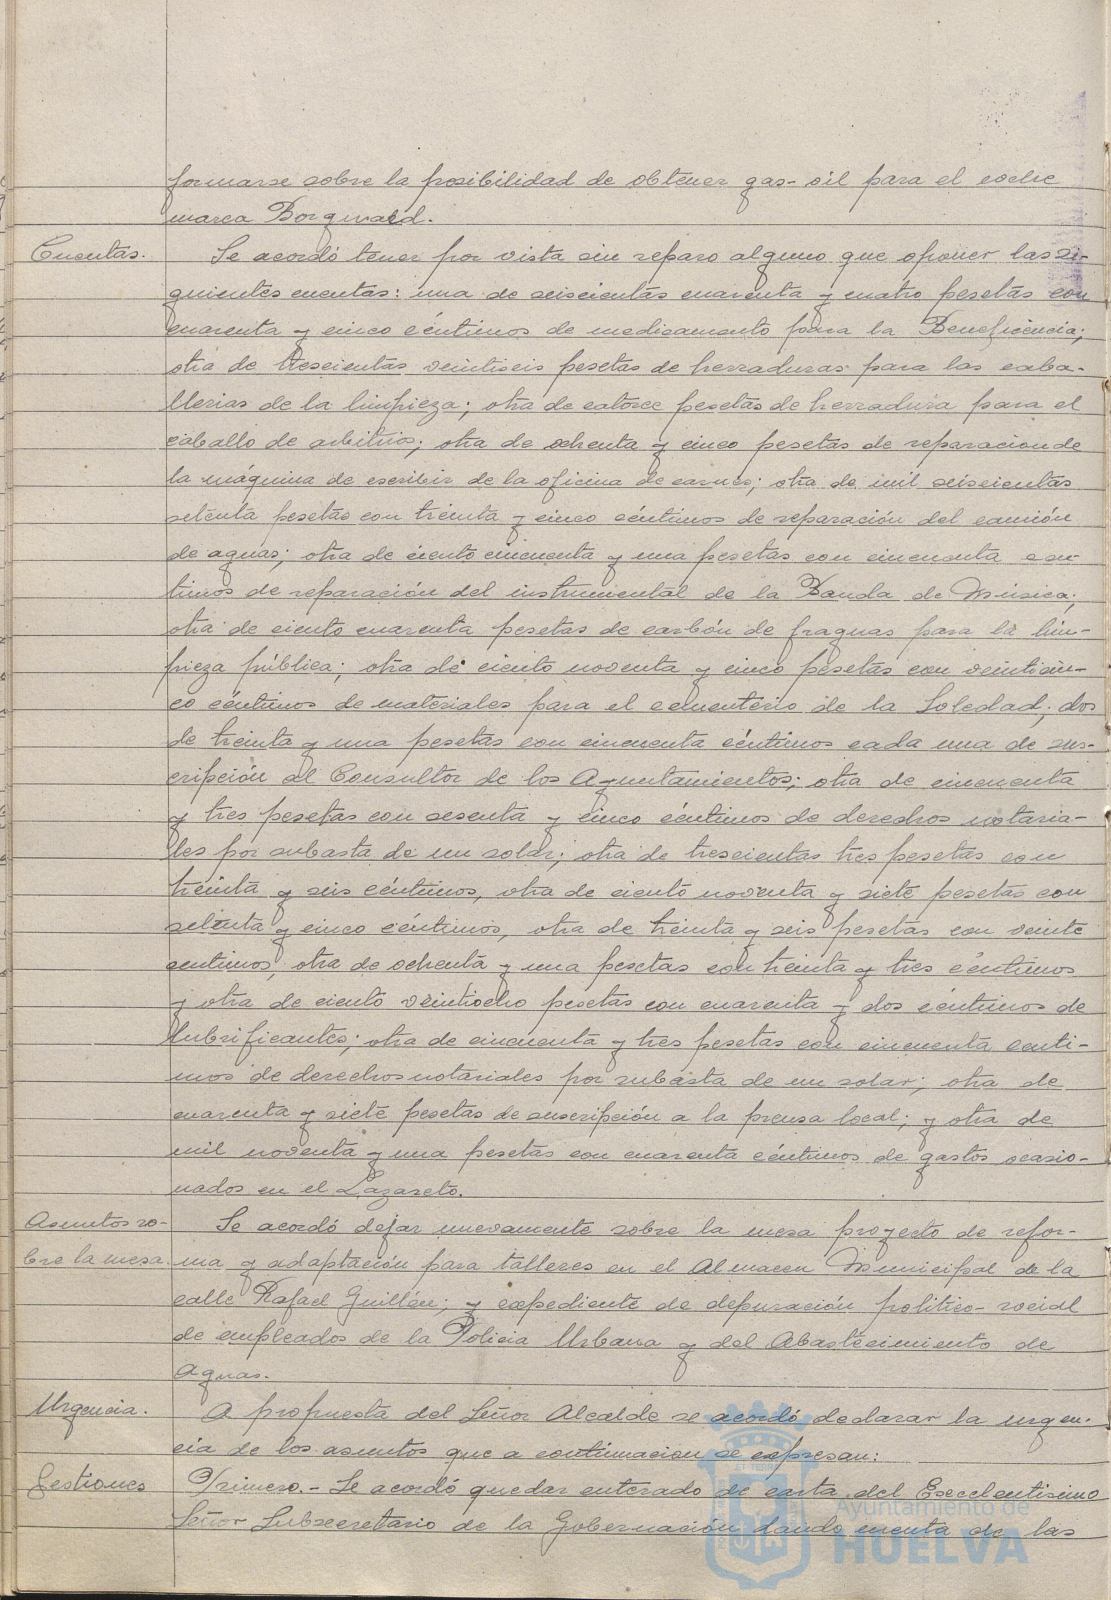 formarse sobre la posibilidad de obtener gas-oil para el coche
marca Borgward.
Cuentas. Se acordó tener por vista sin reparo alguno que oponer las si-
guientes cuentas: una de seiscientas cuarenta y cuatro pesetas con
cuarenta y cinco céntimos de medicamento para la Beneficencia;
otra de trescientas veintiseis pesetas de herraduras para las caba-
llerias de la limpieza; otra de catorce pesetas de herradura para el
caballo de arbitrios; otra de ochenta y cinco pesetas de reparacion de
la máquina de escribir de la oficina de carnes; otra de mil seiscientas
setenta pesetas con treinta y cinco céntimos de reparación del camión
de aguas; otra de ciento cincuenta y una pesetas con cincuenta cen-
timos de reparación del instrumental de la Banda de Música;
otra de ciento cuarenta pesetas de carbón de fraguas para la lim-
pieza pública; otra de ciento noventa y cinco pesetas con veinticin-
co céntimos de materiales para el cementerio de la Soledad; dos
de treinta y una pesetas con cincuenta céntimos cada una de sus-
cripción al Consultor de los Ayuntamientos; otra de cincuenta
y tres pesetas con sesenta y cinco céntimos de derechos notaria-
les por subasta de un solar; otra de trescientas tres pesetas con
treinta y seis céntimos, otra de ciento noventa y siete pesetas con
setenta y cinco céntimos, otra de treinta y seis pesetas con veinte
centimos, otra de ochenta y una pesetas con treinta y tres céntimos
y otra de ciento veintiocho pesetas con cuarenta y dos céntimos de
lubrificantes; otra de cincuenta y tres pesetas con cincuenta centi-
mos de derechos notariales por subasta de un solar; otra de
cuarenta y siete pesetas de suscripción a la prensa local; y otra de
mil noventa y una pesetas con cuarenta céntimos de gastos ocasio-
nados en el Lazareto.
Asuntos so- Se acordó dejar nuevamente sobre la mesa proyecto de refor-
bre la mesa. ma y adaptación para talleres en el Almacen Municipal de la
calle Rafael Guillén; y expediente de depuración politico-social
de empleados de la Policia Urbana y del Abastecimiento de
Aguas.
Urgencia. A propuesta del Señor Alcalde se acordó declarar la urgen-
cia de los asuntos que a continuacion se expresan:
Gestiones Primero.- Se acordó quedar enterado de carta del Excelentisimo
Señor Subsecretario de la Gobernación dando cuenta de las
Ayuntamiento de
HUELVA